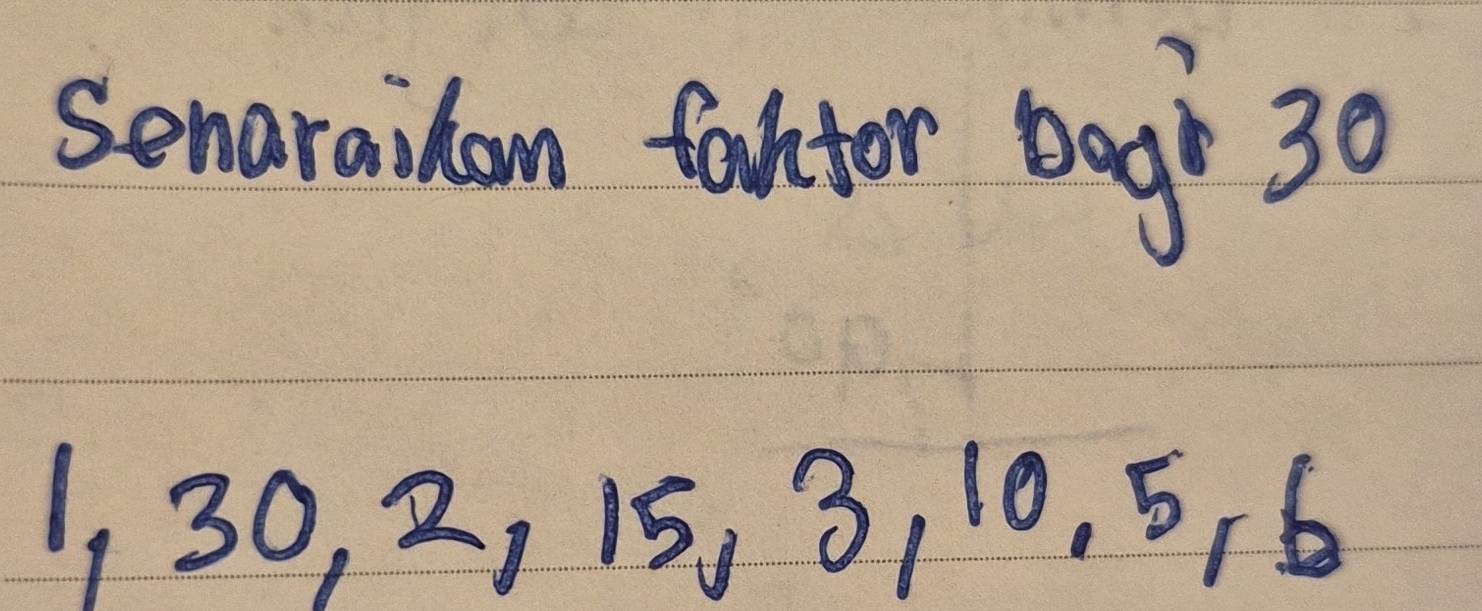 Senaraikan faktor bagi 30
1, 30, 2, 15, 3, 10, 5, 6